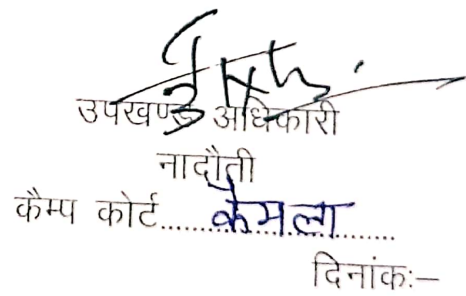 उपखण्ड अधिकारी
नादौती
कैम्प कोर्ट.....कैमला.....
दिनांक:–